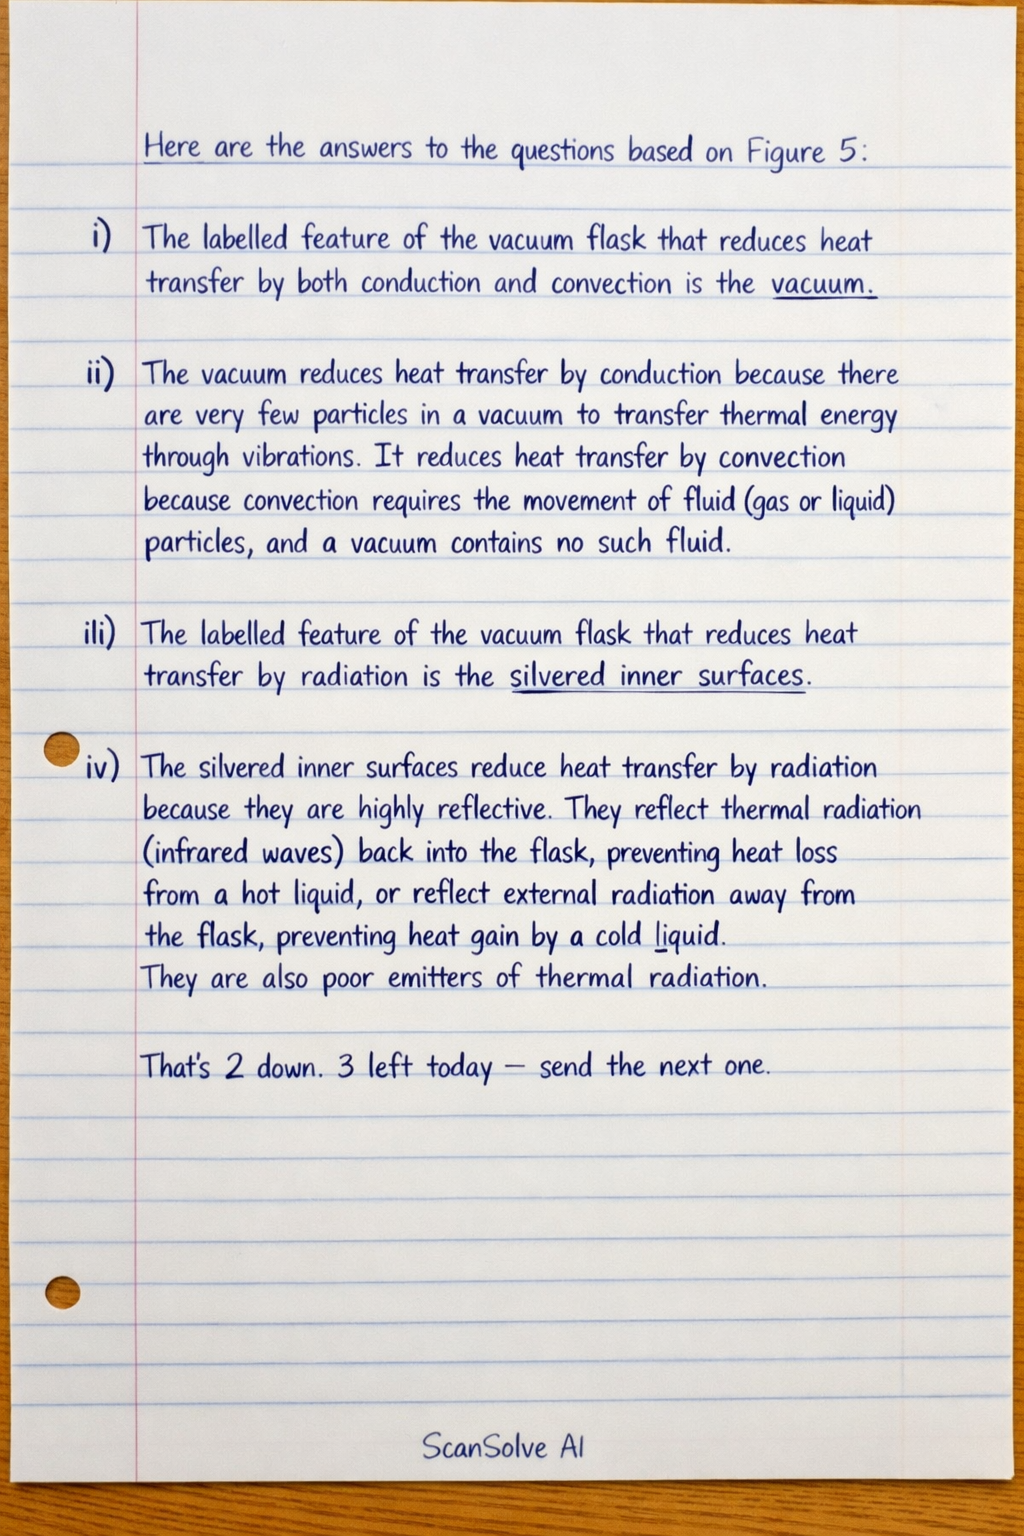 Here are the answers to the questions based on Figure 5:
i) The labelled feature of the vacuum flask that reduces heat
transfer by both conduction and convection is the vacuum.
ii) The vacuum reduces heat transfer by conduction because there
are very few particles in a vacuum to transfer thermal energy
through vibrations. It reduces heat transfer by convection
because convection requires the movement of fluid (gas or liquid)
particles, and a vacuum contains no such fluid.
iii) The labelled feature of the vacuum flask that reduces heat
transfer by radiation is the silvered inner surfaces.
iv) The silvered inner surfaces reduce heat transfer by radiation
because they are highly reflective. They reflect thermal radiation
(infrared waves) back into the flask, preventing heat loss
from a hot liquid, or reflect external radiation away from
the flask, preventing heat gain by a cold liquid.
They are also poor emitters of thermal radiation.
That's 2 down. 3 left today — send the next one.
ScanSolve AI